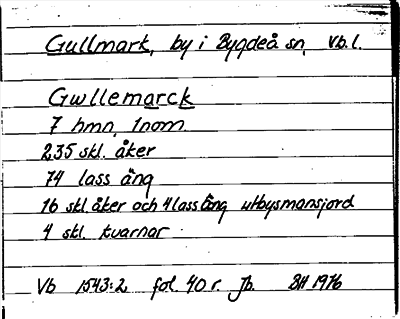 Gullmark, by i Bygdeå sn, Vb.l.
Gwllemarck
7 hmn, 1nom.
235 skl. åker
74 lass äng
16 skl åker och 4 lass äng utbysmansjord
4 skl. kvarnar
Vb 1543:2 fol. 40 r. Jb. BH 1976